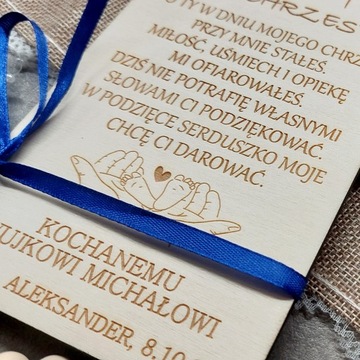 CHRZES
TY W DNIU MOJEGO CHRZ
PRZY MNIE STAŁEŚ.
MIŁOŚĆ, UŚMIECH I OPIEKĘ
MI OFIAROWAŁEŚ.
DZIŚ NIE POTRAFIĘ WŁASNYMI
SŁOWAMI CI PODZIĘKOWAĆ.
W PODZIĘCE SERDUSZKO MOJE
CHCĘ CI DAROWAĆ.
KOCHANEMU
UJKOWI MICHAŁOWI
ALEKSANDER, 8.10